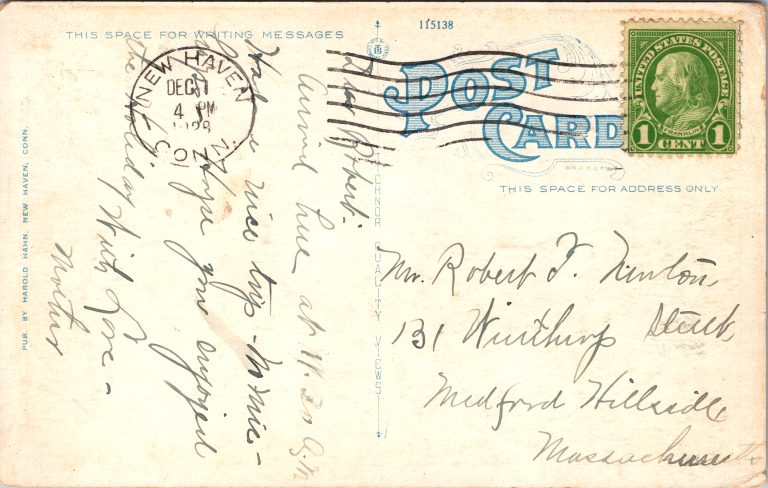 THIS SPACE FOR WRITING MESSAGES
115138
POST CARD
THIS SPACE FOR ADDRESS ONLY
UNITED STATES POSTAGE
FRANKLIN
1 CENT 1
NEW HAVEN
DEC 1
4 PM
CONN.
PUB. BY HAROLD HAHN, NEW HAVEN, CONN.
TICHNOR QUALITY VIEWS
Dear Robert:
Arrived here at 11.20 A.M
Had a nice trip -
Hope you enjoyed
the Holiday With Love -
Mother
Mr. Robert F. Newton,
131 Winthrop Street,
Medford Hillside,
Massachusetts